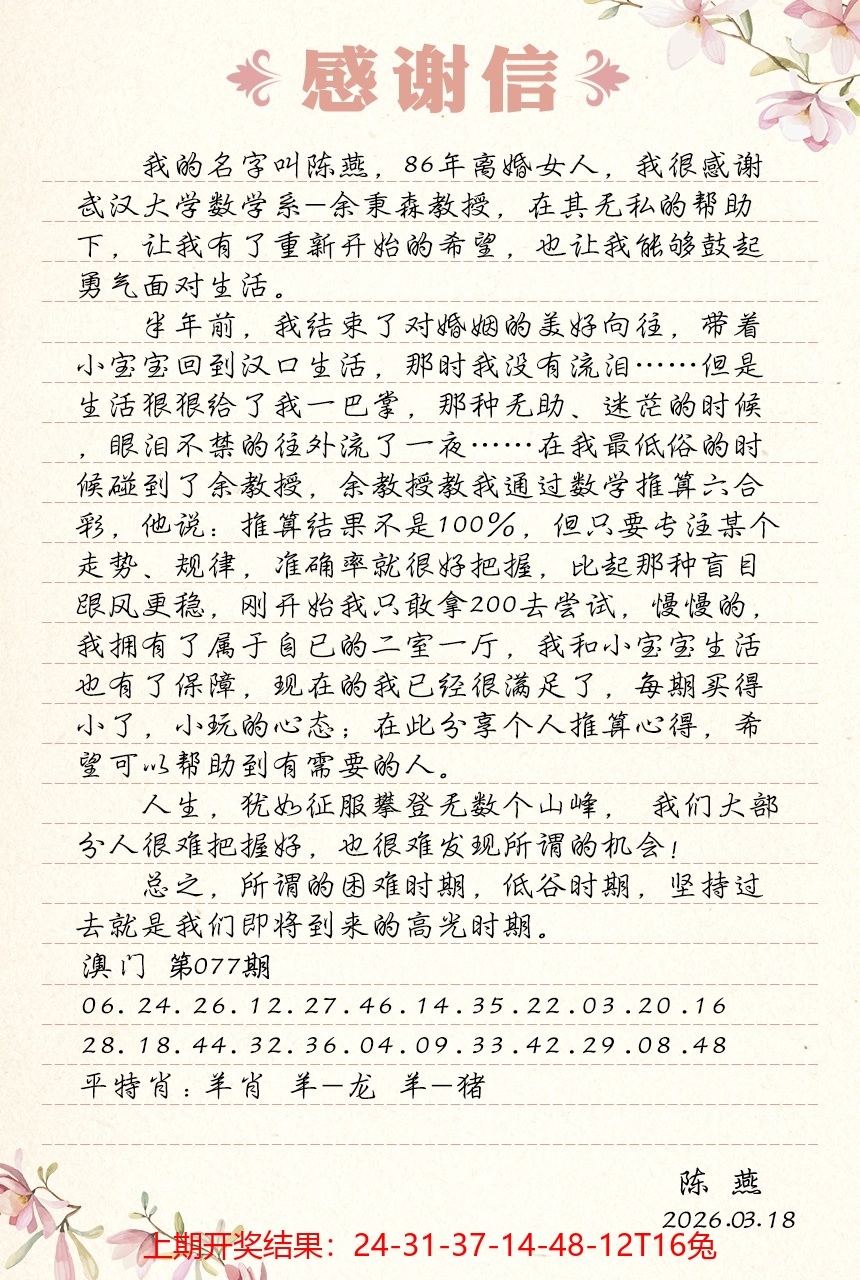 感谢信
我的名字叫陈燕，86年离婚女人，我很感谢
武汉大学数学系—余秉森教授，在其无私的帮助
下，让我有了重新开始的希望，也让我能够鼓起
勇气面对生活。
半年前，我结束了对婚姻的美好向往，带着
小宝宝回到汉口生活，那时我没有流泪……但是
生活狠狠给了我一巴掌，那种无助、迷茫的时候
，眼泪不禁的往外流了一夜……在我最低俗的时
候碰到了余教授，余教授教我通过数学推算六合
彩，他说：推算结果不是100%，但只要专注某个
走势、规律，准确率就很好把握，比起那种盲目
跟风更稳，刚开始我只敢拿200去尝试，慢慢的，
我拥有了属于自已的二室一厅，我和小宝宝生活
也有了保障，现在的我已经很满足了，每期买得
小了，小玩的心态；在此分享个人推算心得，希
望可以帮助到有需要的人。
人生，犹如征服攀登无数个山峰， 我们大部
分人很难把握好，也很难发现所谓的机会！
总之，所谓的困难时期，低谷时期，坚持过
去就是我们即将到来的高光时期。
澳门 第077期
06.24.26.12.27.46.14.35.22.03.20.16
28.18.44.32.36.04.09.33.42.29.08.48
平特肖：羊肖 羊—龙 羊—猪
陈 燕
2026.03.18
上期开奖结果：24-31-37-14-48-12T16兔